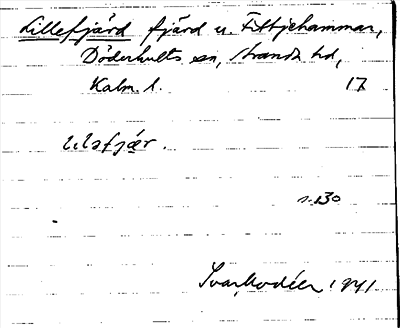 Lillefjärd fjärd u. Fittjehammar,
Döderhults sn, Stranda hd,
Kalm. l. 17
lilafjær.
s. 130
Ivar Modéer 1941